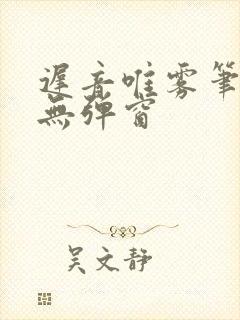 遲音唯雾筆
無彈窗
吴文靜